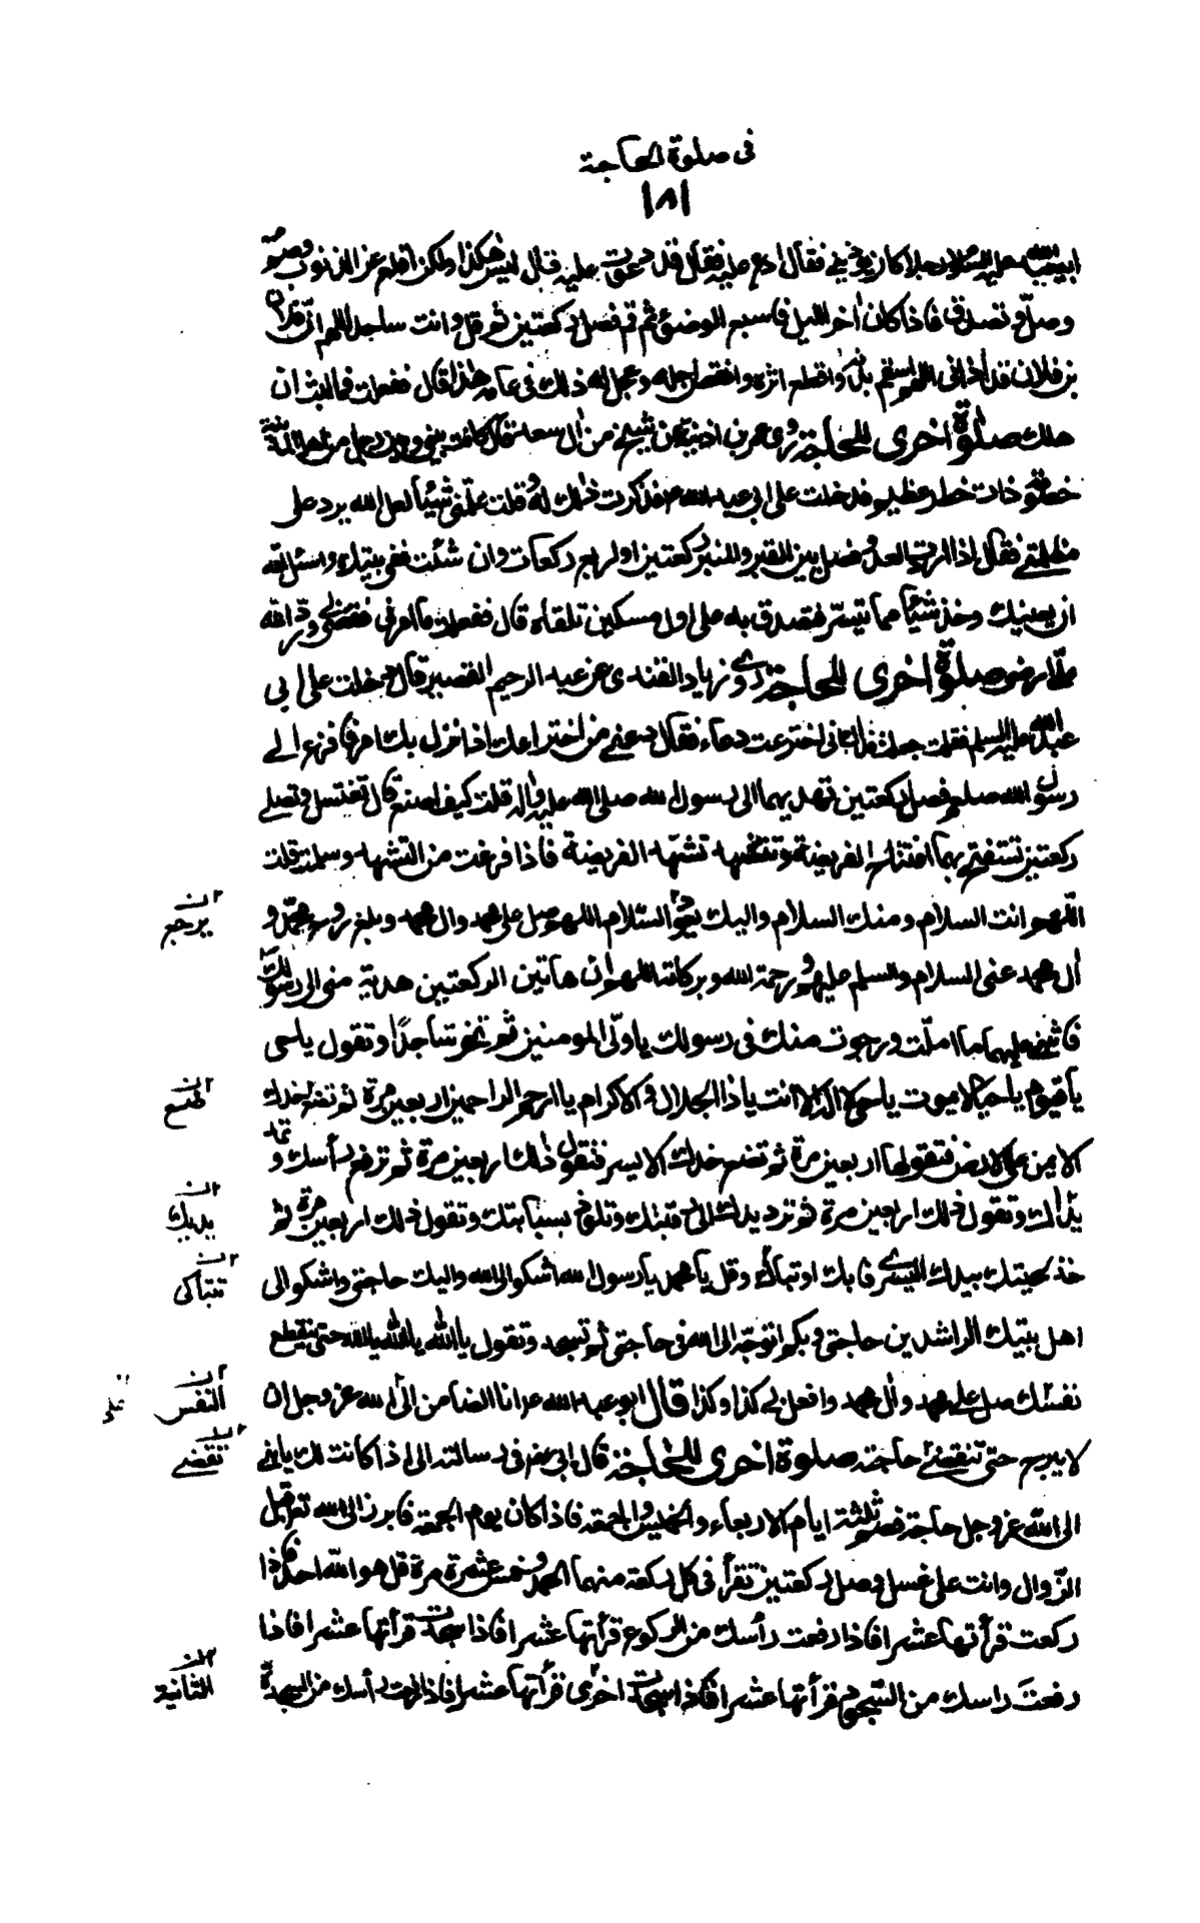 فى صلوة الحاجة
١٨١
ابيعبد الله عليه السلام ان رجلا كان يؤذيني فقال ادع عليه فقال قد دعوت عليه فقال ليس هكذا ولكن اقلع عن الذنوب وصم
وصلّ وتصدق فاذا كان اخر الليل فاسبغ الوضوء ثم قم فصل ركعتين ثم قل وانت ساجد اللهم ان فلان
بن فلان قد اذانى اللهم اسقم بدنه واقطع اثره وانقص اجله وعجل له ذلك فى عامه هذا قال ففعلت فما لبث ان
هلك صلوة اخرى للحاجة روى عمر بن اذينة عن شيخ من ال سعد قال كانت بينى وبين رجل من اهل المدينة
خصومة ذات خطر عظيم فدخلت على ابى عبد الله ع فذكرت ذلك له وقلت علّمنى شيئا لعل الله يرد على
مظلمتى فقال اذا اردت العدو فصل بين القبر والمنبر ركعتين او اربع ركعات وان شئت ففى بيتك واسئل الله
ان يعينك وخذ شيئا مما تيسّر فتصدق به على اول مسكين تلقاه قال ففعلت ما امرنى فقضى لى وردّ الله
علىّ ارضى صلوة اخرى للحاجة روى زياد القندى عن عبد الرحيم القصير قال دخلت على ابى
عبد الله عليه السلم فقلت جعلت فداك انى اخترعت دعاء فقال دعنى من اختراعك اذا نزل بك امر فافزع الى
رسول الله صلعم وصل ركعتين تهديهما الى رسول الله صلى الله عليه واله قلت كيف اصنع قال تغتسل وتصلى
ركعتين تستفتح بهما افتتاح الفريضة وتتشهد تشهد الفريضة فاذا فرغت من التشهد وسلمت قلت
اللهم انت السلام ومنك السلام واليك يعود السلام اللهم صل على محمد وال محمد وبلغ روح محمد و
ال محمد عنى السلام والسلم عليهم ورحمة الله وبركاته اللهم ان هاتين الركعتين هدية منى الى رسولك
فاثبنى عليهما ما املت ورجوت منك فى رسولك يا ولى المومنين ثم تخر ساجدا وتقول يا حى
يا قيوم يا حيا لا يموت يا حى لا اله الا انت يا ذا الجلال والاكرام يا ارحم الراحمين اربعين مرة ثم تضع خدك
الايمن على الارض فتقولها اربعين مرة ثم تضع خدك الايسر فتقول ذلك اربعين مرة ثم ترفع رأسك وتمد
يدك وتقول ذلك اربعين مرة ثم ترد يدك الى رقبتك وتلوذ بسبابتك وتقول ذلك اربعين مرة ثم
خذ لحيتك بيدك اليسرى فابك او تباك وقل يا محمد يا رسول الله اشكو الى الله واليك حاجتى واشكو الى
اهل بيتك الراشدين حاجتى وبكم اتوجّه الى الله فى حاجتى ثم تسجد وتقول يا الله يا الله يا الله حتى ينقطع
نفسك صل على محمد وال محمد وافعل بى كذا وكذا قال ابو عبد الله ع انا الضامن الى الله عز وجل ان
لا يبرح حتى تنقضى حاجته صلوة اخرى للحاجة قال ابى رض فى رسالته الى اذا كانت لك يا بنى
الى الله عز وجل حاجة فصم ثلثة ايام الاربعاء والخميس والجمعة فاذا كان يوم الجمعة فابرز الى الله تع قبل
الزوال وانت على غسل وصل ركعتين تقرأ فى كل ركعة منهما الحمد وخمس عشرة مرة قل هو الله احد فاذا
ركعت قرأتها عشرا فاذا رفعت رأسك من الركوع قرأتها عشرا فاذا سجدت قرأتها عشرا فاذا
رفعت راسك من السجود قرأتها عشرا فاذا سجدت اخرى قرأتها عشرا فاذا رفعت رأسك من السجدة
يرجع
تضع
يديك
تتباكى
النفس
تقضى
الثانية